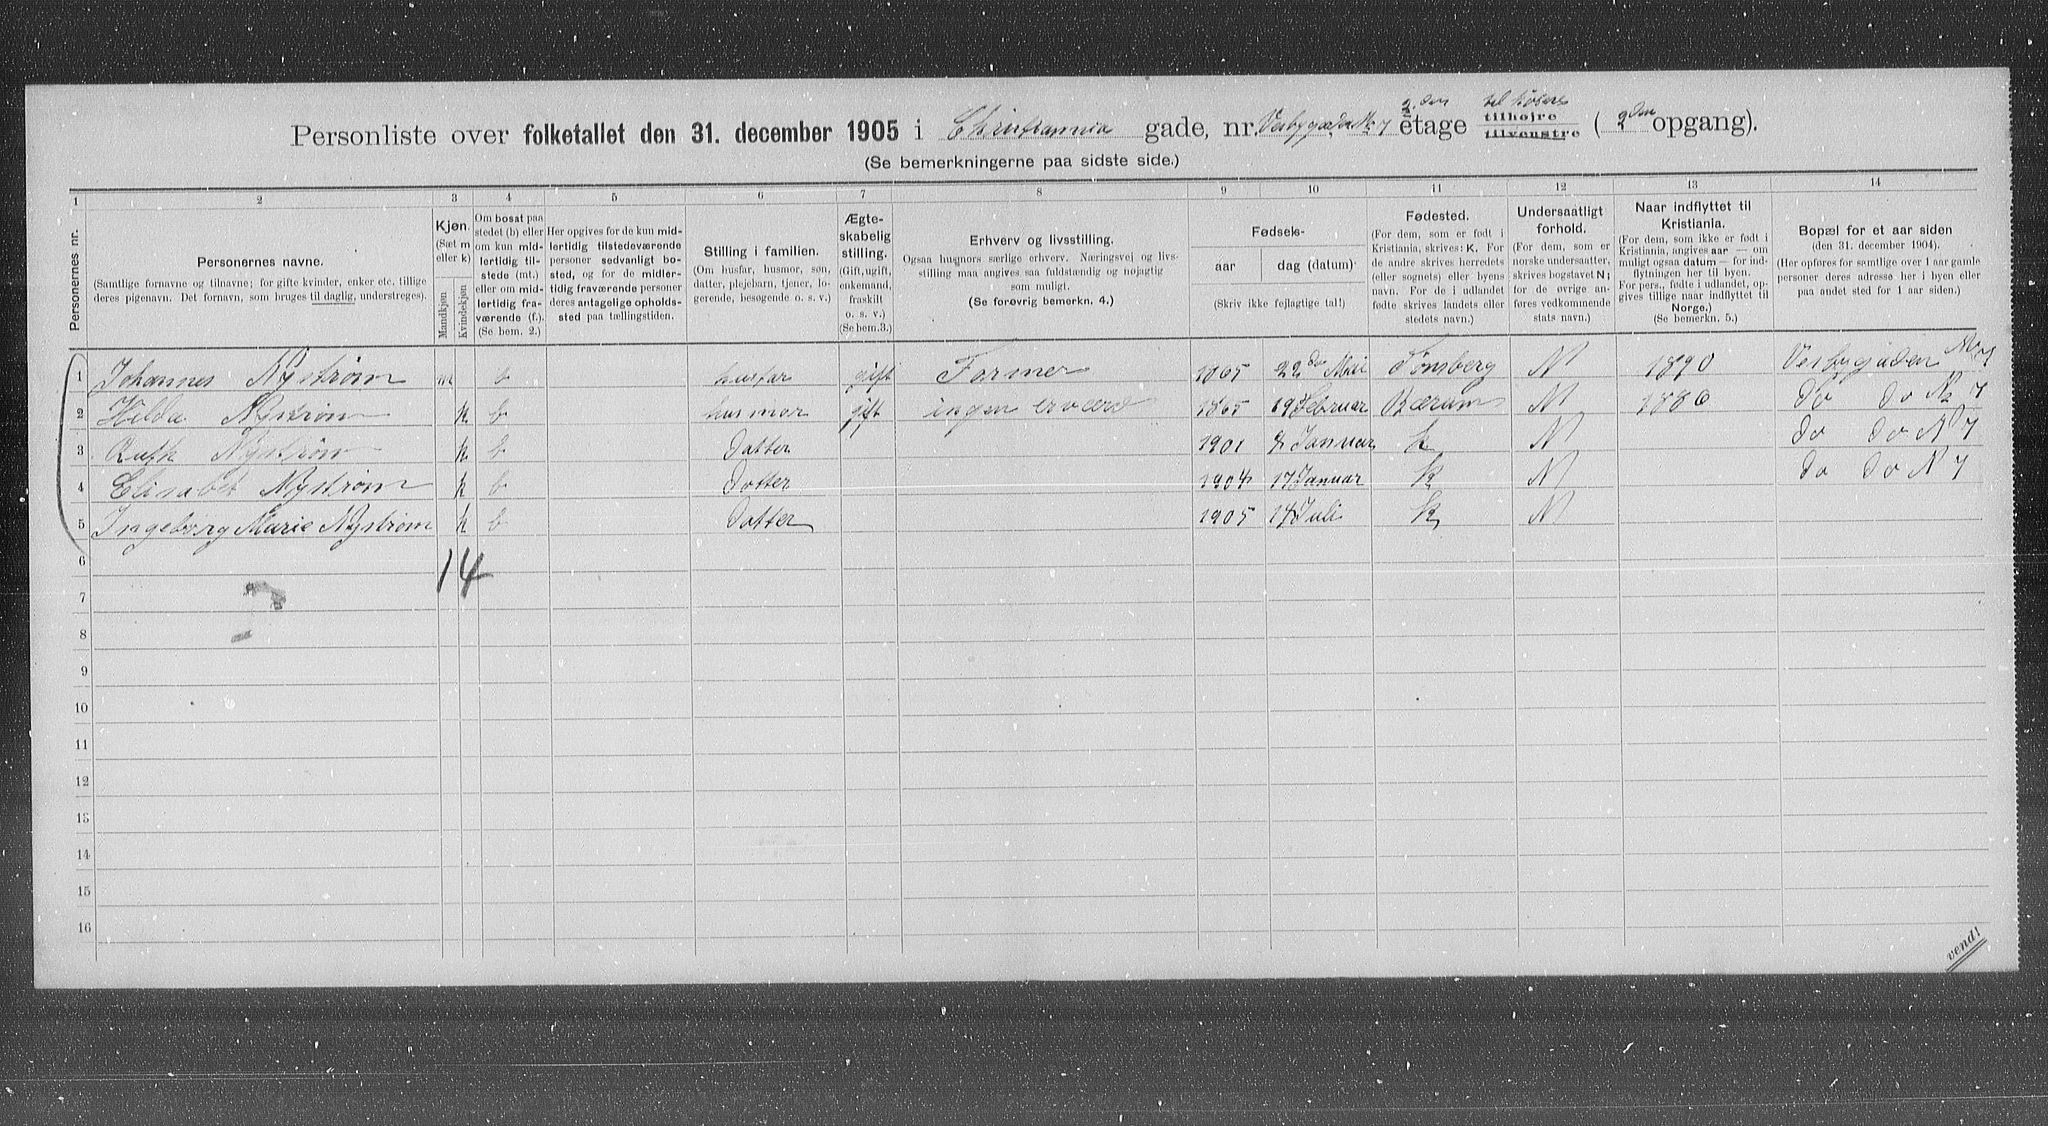 Personliste over folketallet den 31. december 1905 i Christiannia gade, nr. Vesbygaden No 7 2.den etage til høire tilhøjre tilvenstre ( 2den opgang).
(Se bemerkningerne paa sidste side.)
1 2 3 4 5 6 7 8 9 10 11 12 13 14
Personernes nr.
Personernes navne.
(Samtlige fornavne og tilnavne; for gifte kvinder, enker etc. tillige
deres pigenavn. Det fornavn, som bruges til daglig, understreges).
Kjøn.
(Sæt m
eller k)
Mandkjøn
Kvindekjøn
Om bosat paa
stedet (b) eller
om kun mid-
lertidig til-
stede (mt.)
eller om mid-
lertidig fra-
værende (f.).
(Se bem. 2.)
Her opgives for de kun mid-
lertidig tilstedeværende
personer sedvanligt bo-
sted, og for de midler-
tidig fraværende personer
deres antagelige opholds-
sted paa tællingstiden.
Stilling i familien.
(Om husfar, husmor, søn,
datter, plejebarn, tjener, lo-
gerende, besøgende o. s. v.)
Ægte-
skabelig
stilling.
(Gift, ugift,
enkemand,
fraskilt
o. s. v.)
(Se bem.3.)
Erhverv og livsstilling.
Ogsaa husmors særlige erhverv. Næringsvej og livs-
stilling maa angives saa fuldstændig og nøjagtig
som muligt.
(Se forøvrig bemerkn. 4.)
Fødsels-
aar
dag (datum)
(Skriv ikke fejlagtige tal!)
Fødested.
(For dem, som er født i
Kristiania, skrives: K. For
de andre skrives herredets
(eller sognets) eller byens
navn. For de i udlandet
fødte skrives landets eller
stedets navn.)
Undersaatligt
forhold.
(For dem, som er
norske undersaatter,
skrives bogstavet N;
for de øvrige an-
føres vedkommende
stats navn.)
Naar indflyttet til
Kristiania.
(For dem, som ikke er født i
Kristiania, angives aar — om
muligt ogsaa datum — for ind-
flytningen her til byen.
For pers., fødte i udlandet, op-
gives tillige naar indflyttet til
Norge.)
(Se bemerkn. 5.)
Bopæl for et aar siden
(den 31. december 1904).
(Her opføres for samtlige over 1 aar gamle
personer deres adresse her i byen eller
paa andet sted for 1 aar siden.)
1 Johannes Nystrøm m b husfar gift Former 1865 22de Mai Tønsberg N 1890 Vesbygaden No 7
2 Hilda Nystrøm k b husmor gift ingen erværd 1865 19 Februar Bærum N 1886 do do No 7
3 Ruth Nystrøm k b Datter 1901 Januar k N do do N 7
4 Elisabet Nystrøm k b Dotter 1904 17 Januar k N do do N 7
5 Ingebørg Marie Nystrøm k b Datter 1905 14 Juli k N
6
14
7
8
9
10
11
12
13
14
15
16
vend!